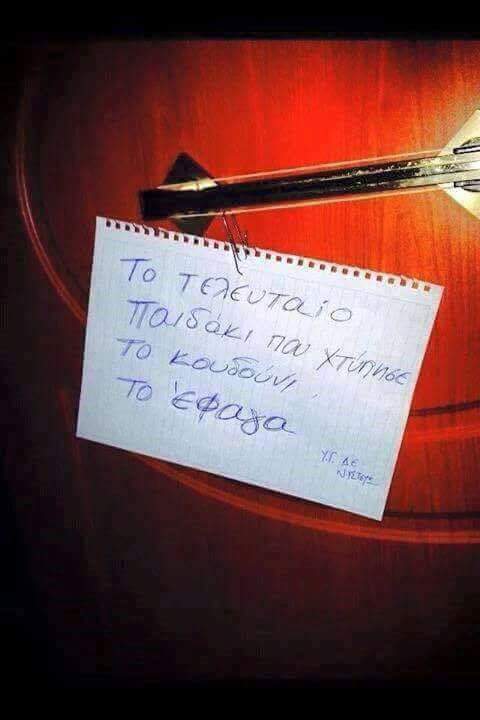 Το τελευταίο
Παιδάκι που χτύπησε
το κουδούνι,
Το έφαγα
Υ.Γ. ΔΕ
ΝΗΣΤΕΥΩ